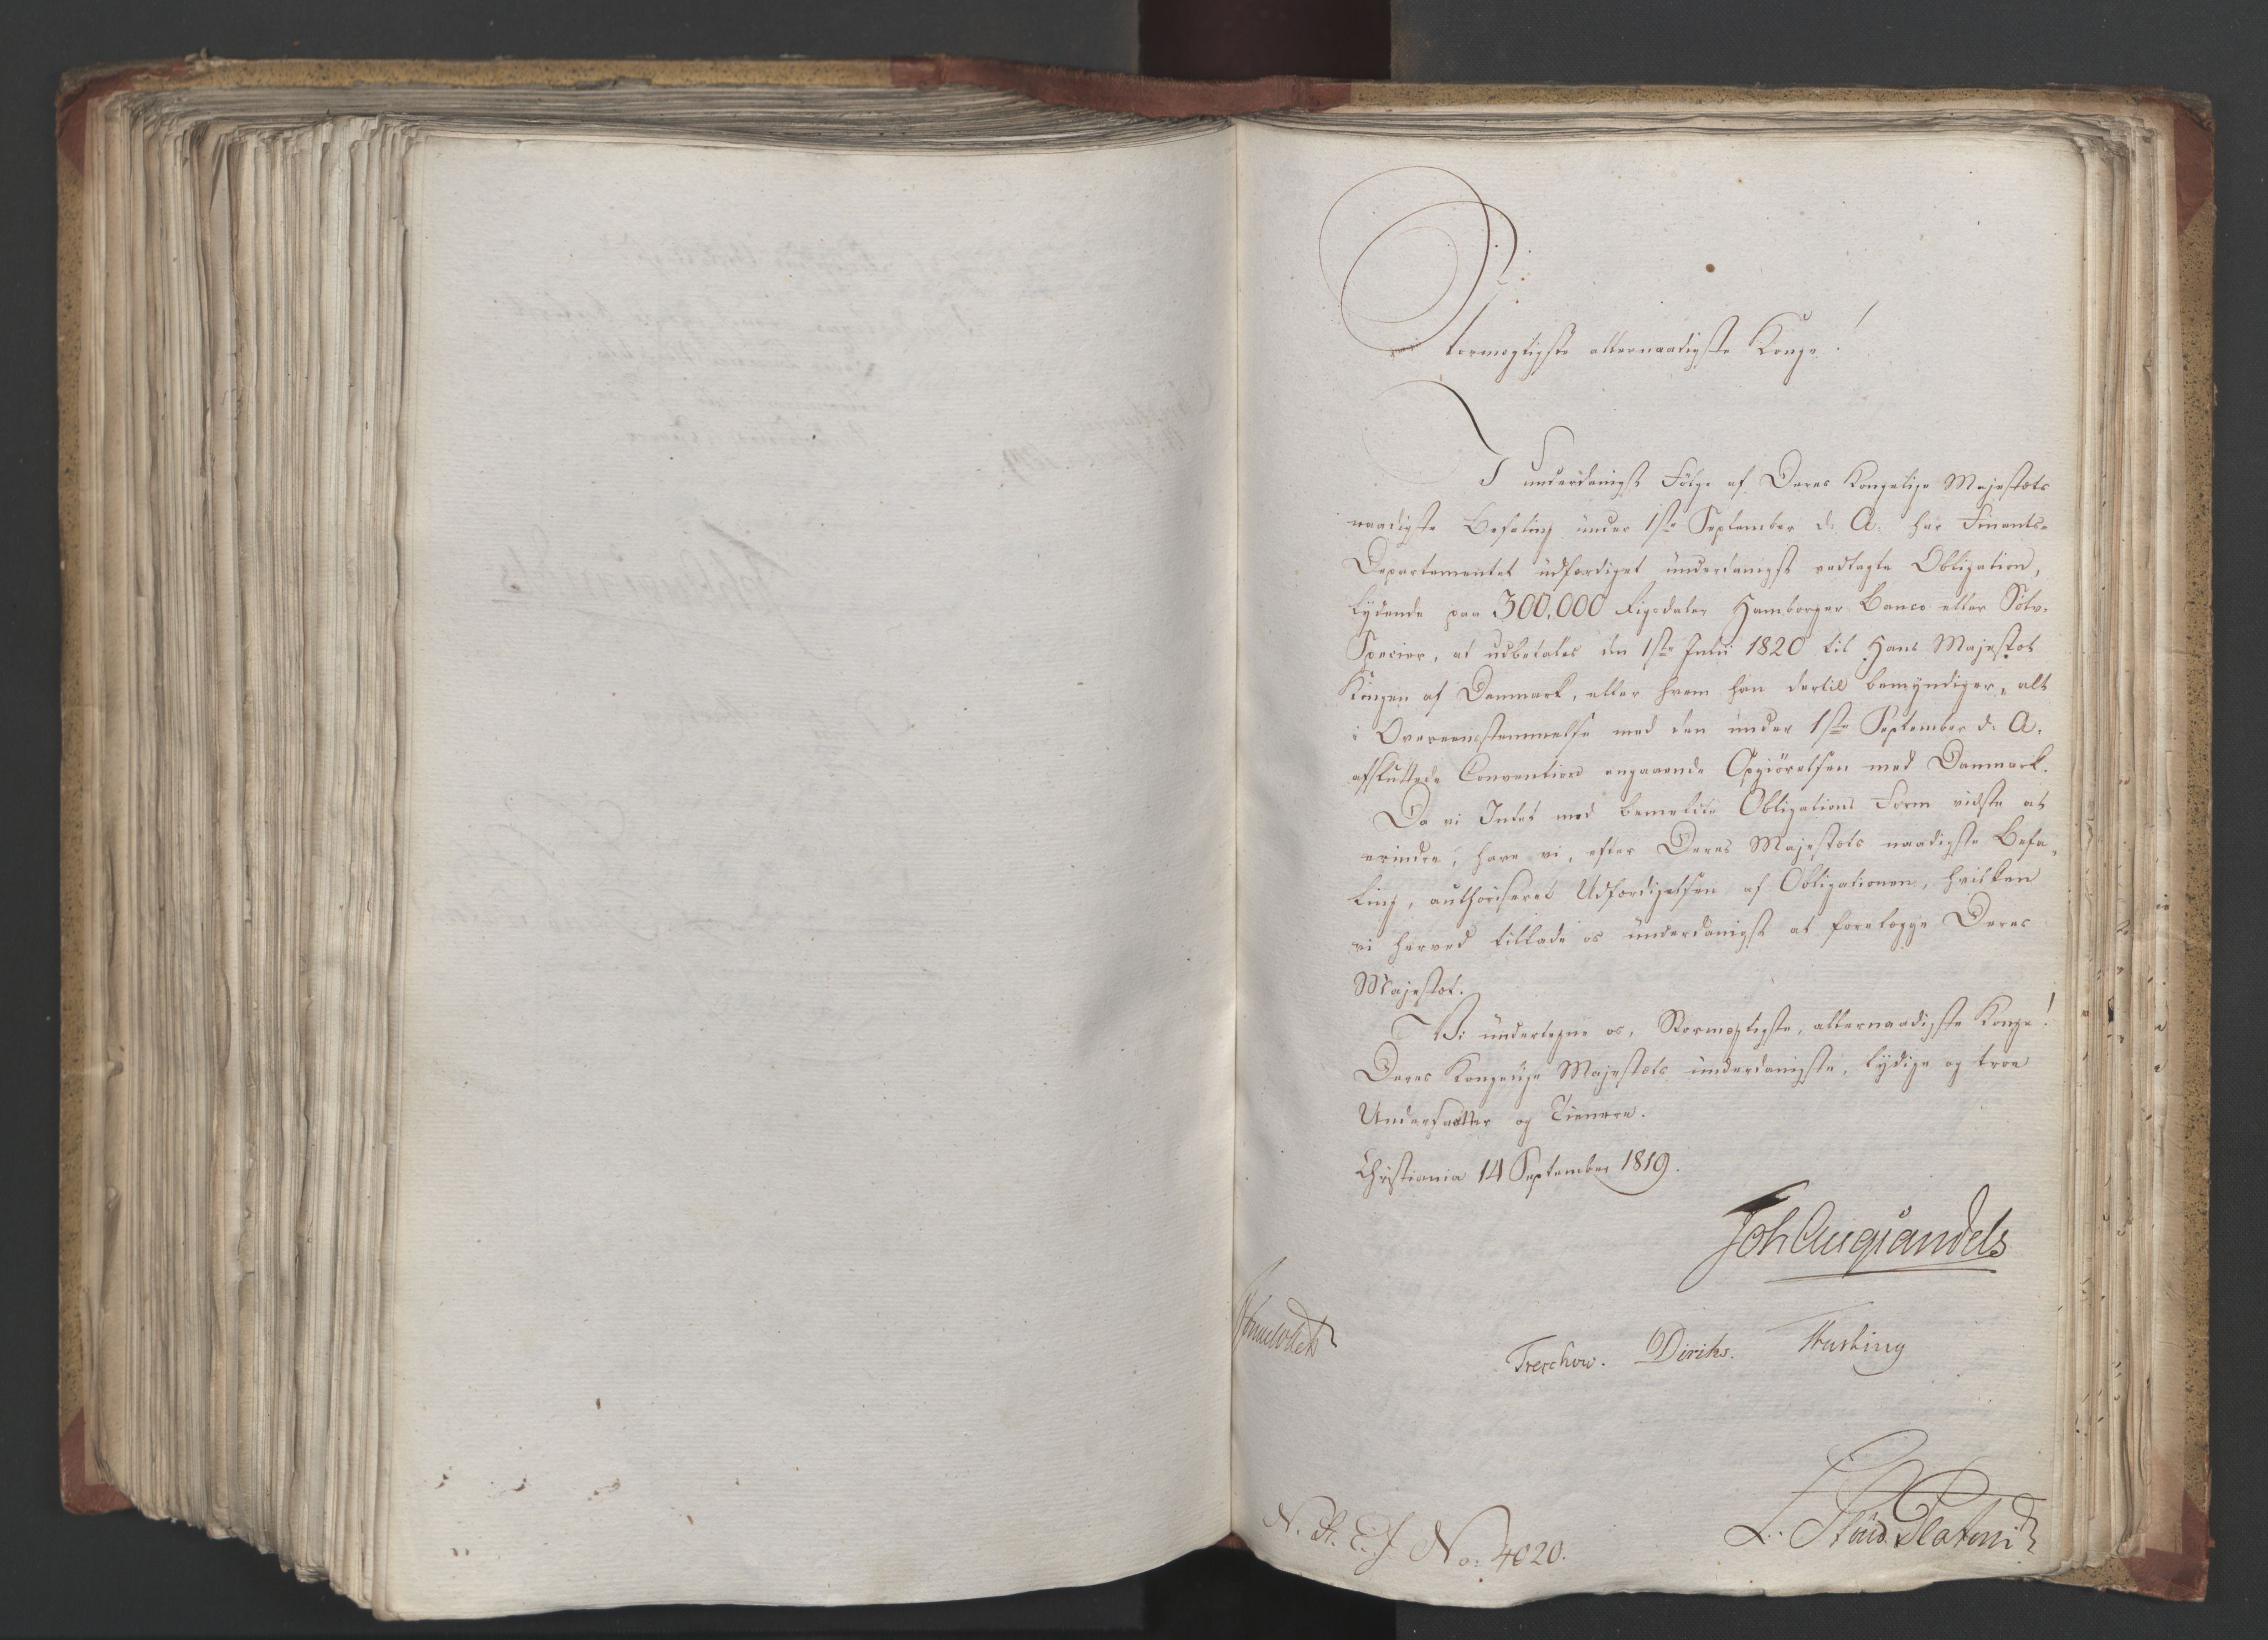 Stormægtigste allernaadigste Konge!
I underdanigst Følge af Deres Kongelige Majestæts
naadigste Befaling under 1ste September d. A. har Finants-
Departementet udfærdiget underdanigst vedlagte Obligation,
lydende paa 300,000 Rigsdaler Hamborger Banco eller Sølv-
Species, at udbetales den 1ste Julii 1820 til Hans Majestæt
Kongen af Danmark, eller hvem han dertil bemyndiger, alt
i Overeensstemmelse med den under 1ste September d. A.
afsluttede Convention angaaende Opgiørelsen med Danmark.
Da vi Intet mod bemeldte Obligations Form vidste at
erindre, have vi, efter Deres Majestæts naadigste Befa-
ling, authoriseret Udfærdigelsen af Obligationen, hvilken
vi herved tillade os underdanigst at forelægge Deres
Majestæt.
Vi undertegne os, Stormægtigste, allernaadigste Konge!
Deres Kongelige Majestæts underdanigste, lydige og troe
Undersaatter og Tienere.
Christiania 14 September 1819.
Joh Aug Sandels
Sommerhielm
Treschow. Diriks. Fasting
L. Stoud Platou
N. R. C. J No. 4020.